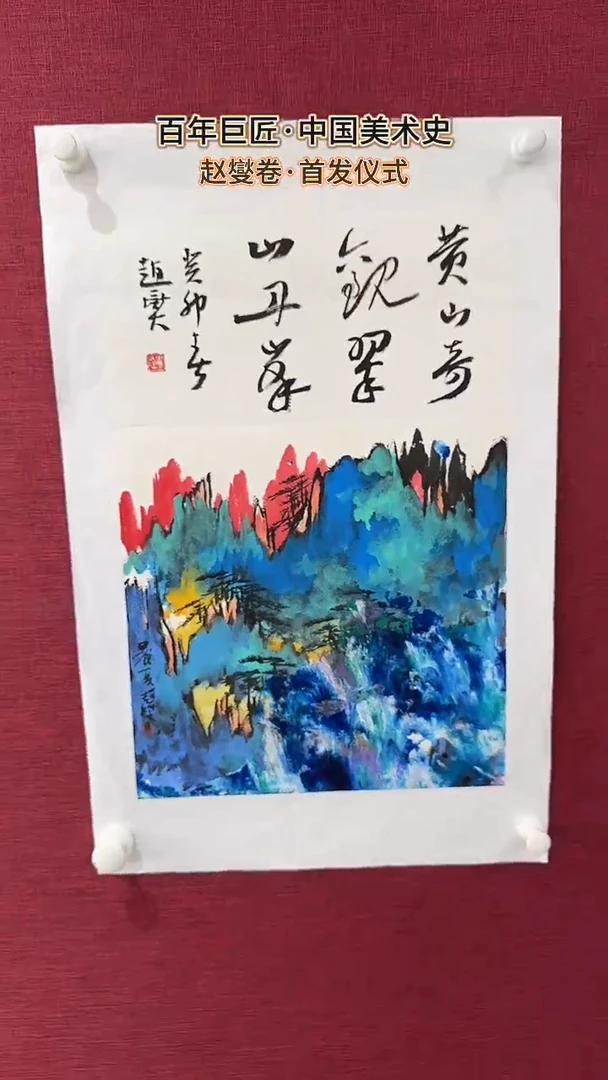 百年巨匠·中国美术史
赵燮卷·首发仪式
黄山奇
观翠
山丹峯
癸卯春
趙燮